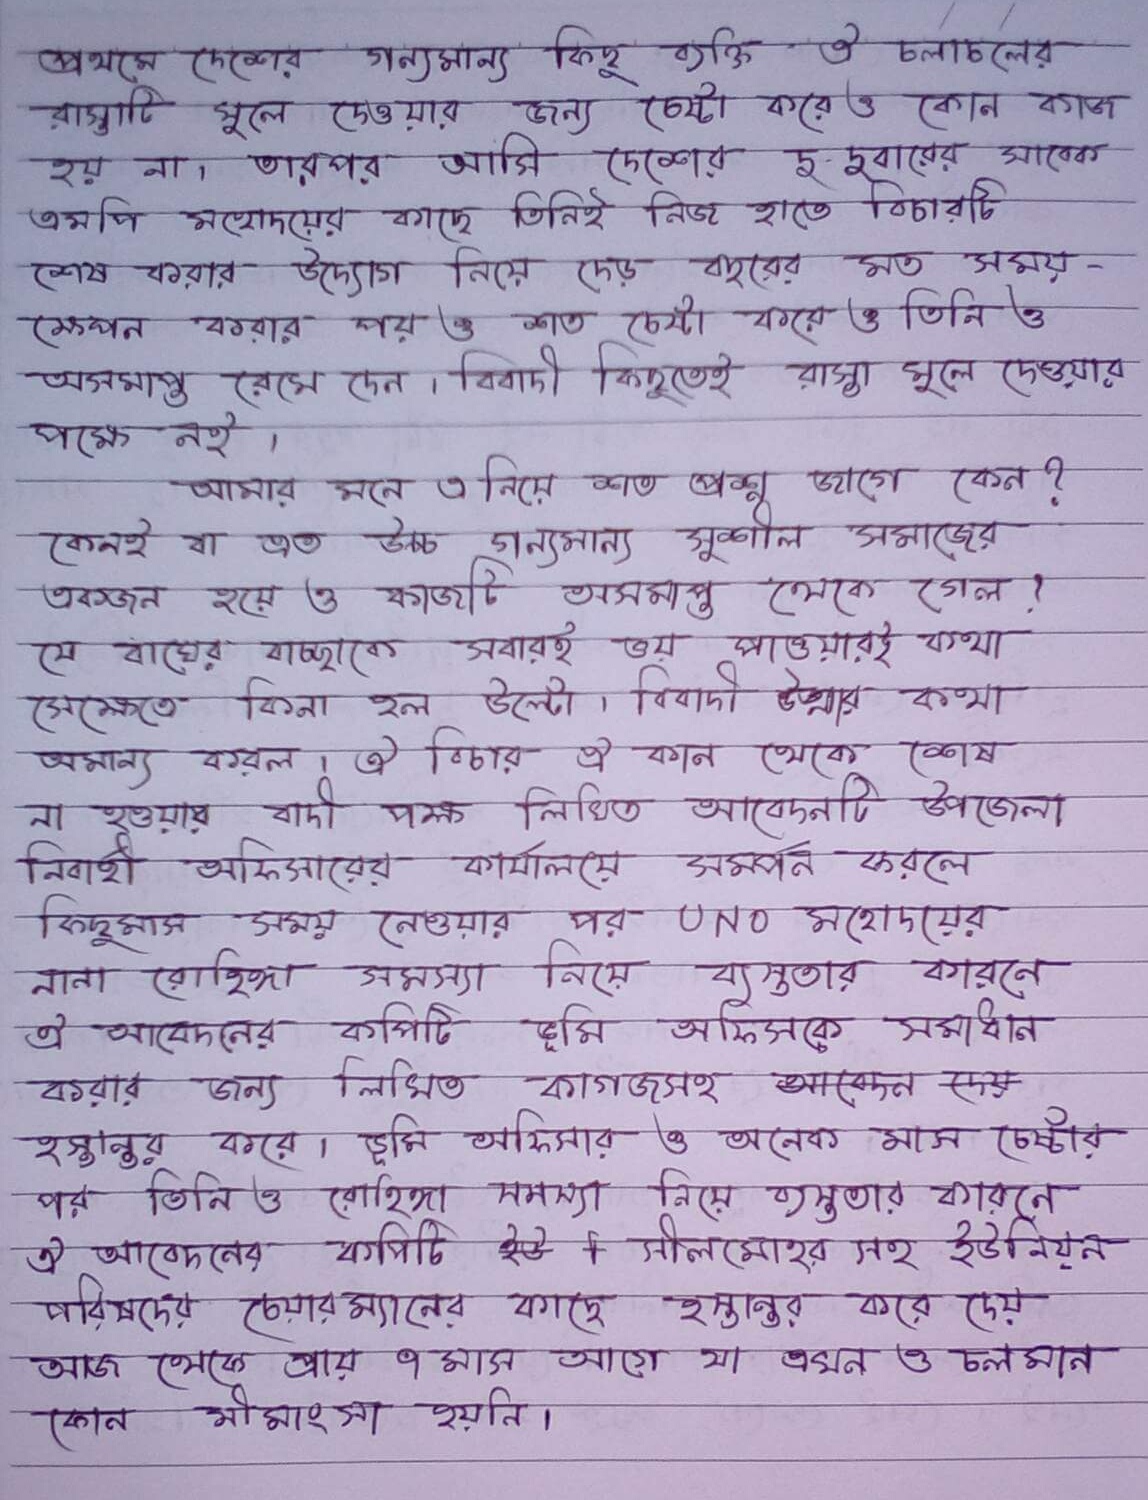 প্রথমে দেশের গন্যমান্য কিছু ব্যক্তি ঐ চলাচলের
রাস্তাটি খুলে দেওয়ার জন্য চেষ্টা করে ও কোন কাজ
হয় না। তারপর আসি দেশের দু-দুবারের সাবেক
এমপি মহোদয়ের কাছে তিনিই নিজ হাতে বিচারটি
শেষ করার উদ্যোগ নিয়ে দেড় বছরের মত সময়-
ক্ষেপন করার পর ও শত চেষ্টা করে ও তিনি ও
অসমাপ্ত রেখে দেন। বিবাদী কিছুতেই রাস্তা খুলে দেওয়ার
পক্ষে নই।
আমার মনে এ নিয়ে শত প্রশ্ন জাগে কেন?
কেনই বা এত উচ্চ গন্যমান্য সুশীল সমাজের
একজন হয়ে ও কাজটি অসমাপ্ত থেকে গেল?
যে বাঘের বাচ্ছাকে সবারই ভয় পাওয়ারই কথা
সেক্ষেতে কিনা হল উল্টো। বিবাদী উনার কথা
অমান্য করল। ঐ বিচার ঐ কান থেকে শেষ
না হওয়ায় বাদী পক্ষ লিখিত আবেদনটি উপজেলা
নিবাহী অফিসারের কার্যালয়ে সমর্পন করলে
কিছুমাস সময় নেওয়ার পর UNO মহোদয়ের
নানা রোহিঙ্গা সমস্যা নিয়ে ব্যস্ততার কারনে
ঐ আবেদনের কপিটি ভূমি অফিসকে সমাধান
করার জন্য লিখিত কাগজসহ আবেদন দেয়
হস্তান্তর করে। ভূমি অফিসার ও অনেক মাস চেষ্টার
পর তিনি ও রোহিঙ্গা সমস্যা নিয়ে ব্যস্ততার কারনে
ঐ আবেদনের কপিটি ইউ সীলমোহর সহ ইউনিয়ন
পরিষদের চেয়ারম্যানের কাছে হস্তান্তর করে দেয়
আজ থেকে প্রায় ৭ মাস আগে যা এখন ও চলমান
কোন মীমাংসা হয়নি।